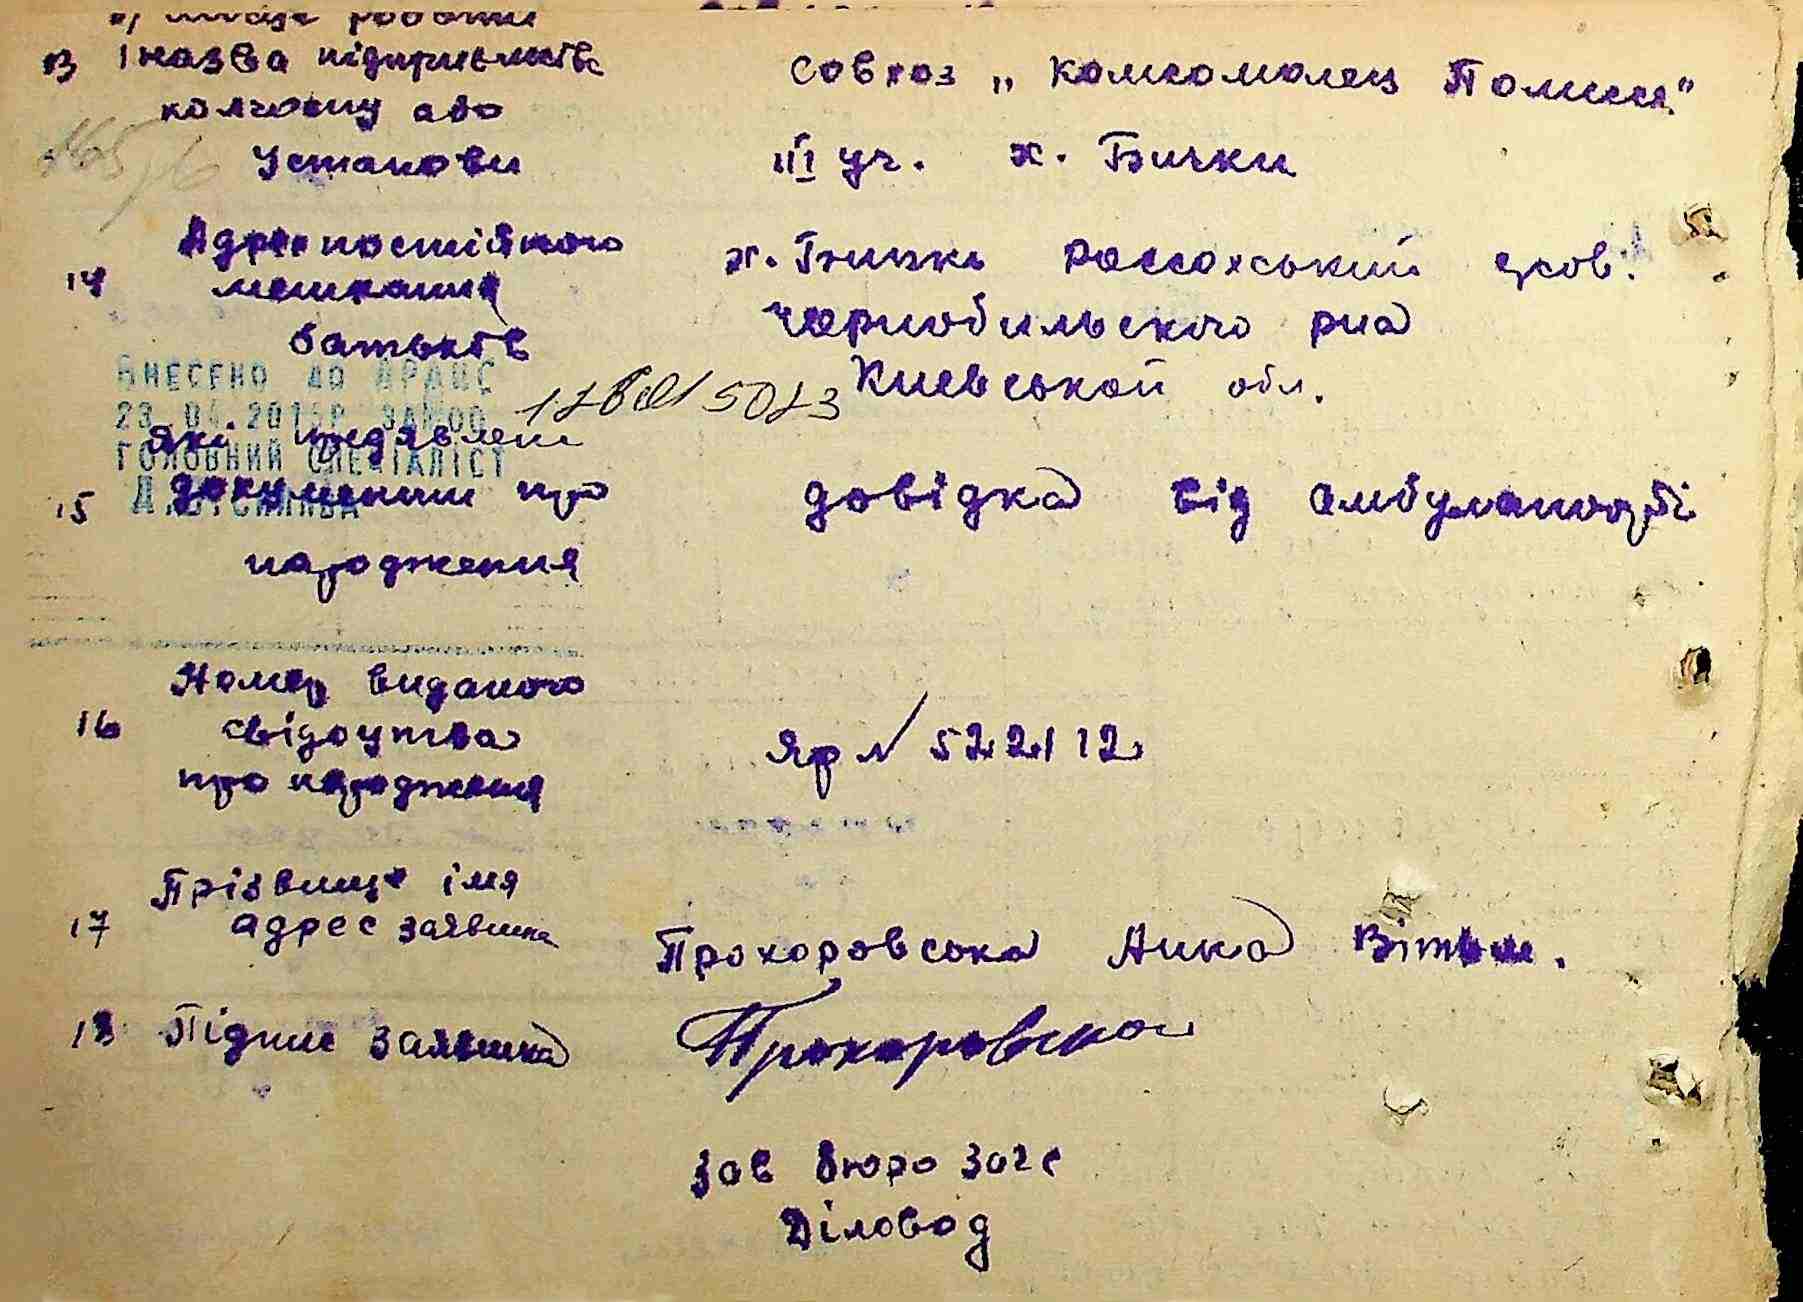 місце роботи
13 і назва підприємства
колгоспу або
установи
совхоз „Комсомолец Полисся"
III уч. х. Бички
14 Адрес постійного
мешкання
батьків
х. Бички Россохський с/сов.
Чорнобильського р-на
Киевськой обл.
ВНЕСЕНО ДО ДРАЦС
23 04 2015Р.
ГОЛОВНИЙ СПЕЦІАЛІСТ
15 Які предявлені
документи про
народження
довідка від амбулаторії
16 Номер виданого
свідоцтва
про народження
Яр N 522112
17 Прізвище імя
адрес заявника
Прохоровська Анна
18 Підпис заявника
Прохоровская
Зав бюро Загс
Діловод